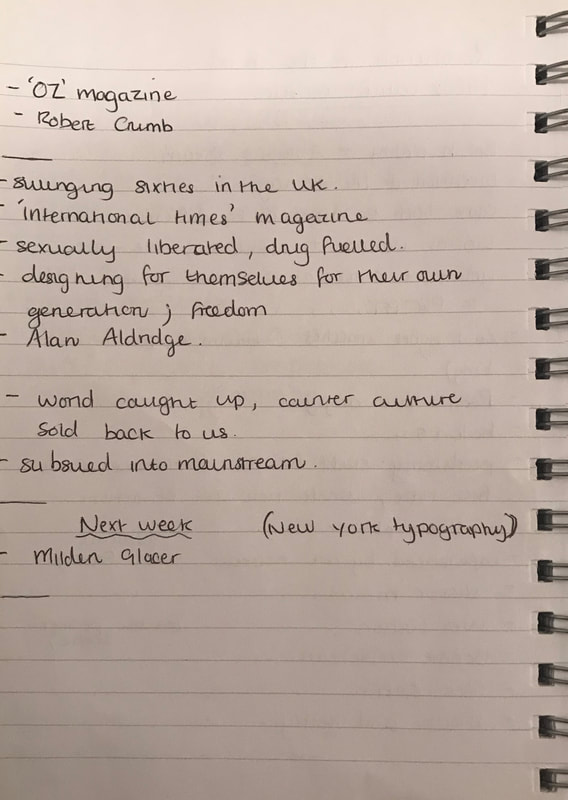 - 'OZ' magazine
- Robert Crumb
- swinging sixties in the UK.
- 'international times' magazine
- sexually liberated, drug fuelled.
- designing for themselves for their own
generation ; freedom
- Alan Aldridge.
- world caught up, counter culture
sold back to us.
- subsued into mainstream.
Next week (New york typography)
- Milden Glacer